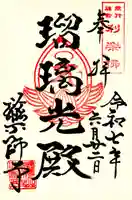 奉拝
令和七年
六月廿二日
瑠璃光殿
薬師寺